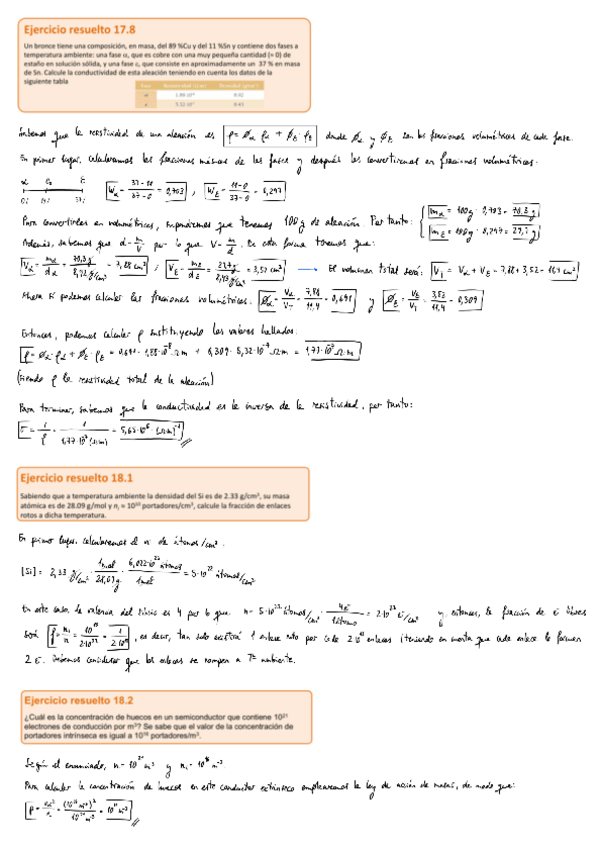 Ejercicio resuelto 17.8
Un bronce tiene una composición, en masa, del 89 %Cu y del 11 %Sn y contiene dos fases a
temperatura ambiente: una fase α, que es cobre con una muy pequeña cantidad (≈ 0) de
estaño en solución sólida, y una fase ε, que consiste en aproximadamente un 37 % en masa
de Sn. Calcule la conductividad de esta aleación teniendo en cuenta los datos de la
siguiente tabla
Sabemos que la resistividad de una aleación es ρ = Øα · ρα + Øε · ρε donde Øα y Øε son las fracciones volumétricas de cada fase.
En primer lugar, calcularemos las fracciones másicas de las fases y después las convertiremos en fracciones volumétricas.
Wα = 37 - 11 / 37 - 0 = 0,703 , Wε = 11 - 0 / 37 - 0 = 0,297
Para convertirlas en volumétricas, supondremos que tenemos 100 g de aleación. Por tanto: mα = 100g · 0,703 = 70,3 g
mε = 100g · 0,297 = 29,7 g
Además, sabemos que d = m/V por lo que V = m/d. De esta forma tenemos que:
El volumen total será: VT = Vα + Vε = 7,88 + 3,52 = 11,4 cm³
Ahora sí podemos calcular las fracciones volumétricas. Øα = Vα/VT = 7,88/11,4 = 0,691 y Øε = Vε/VT = 3,52/11,4 = 0,309
Entonces, podemos calcular ρ sustituyendo los valores hallados:
(siendo ρ la resistividad total de la aleación)
Para terminar, sabemos que la conductividad es la inversa de la resistividad, por tanto:
Ejercicio resuelto 18.1
Sabiendo que a temperatura ambiente la densidad del Si es de 2.33 g/cm³, su masa
atómica es de 28.09 g/mol y nᵢ ≈ 10¹⁰ portadores/cm³, calcule la fracción de enlaces
rotos a dicha temperatura.
En primer lugar, calcularemos el nº de átomos/cm³.
[Si] = 2,33 g/cm³ · 1mol/28,09g · 6,022·10²³ átomos/1mol = 5·10²² átomos/cm³
En este caso la valencia del silicio es 4 por lo que n = 5·10²² átomos/cm³ · 4e⁻/1átomo = 2·10²³ e⁻/cm³ y, entonces, la fracción de e⁻ libres
será , es decir, tan solo existirá 1 enlace roto por cada enlaces (teniendo en cuenta que cada enlace lo forman
2 e⁻. Debemos considerar que los enlaces se rompen a Tª ambiente.
Ejercicio resuelto 18.2
¿Cuál es la concentración de huecos en un semiconductor que contiene 10²¹
electrones de conducción por m³? Se sabe que el valor de la concentración de
portadores intrínseca es igual a 10¹⁶ portadores/m³.
Según el enunciado, n = 10²¹ m⁻³ y nᵢ = 10¹⁶ m⁻³.
Para calcular la concentración de huecos en este conductor extrínseco emplearemos la ley de acción de masas, de modo que: